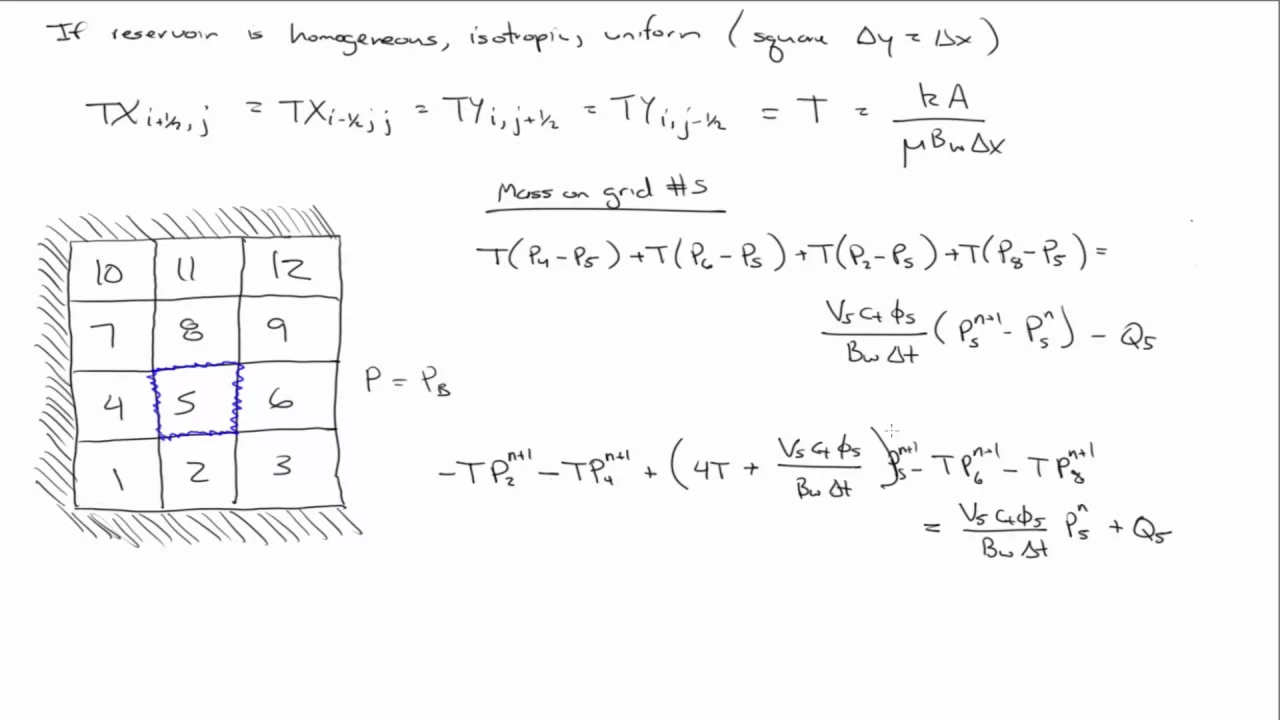 If reservoir is homogeneous, isotropic, uniform (square Δy = Δx)
TX_{i+½,j} = TX_{i-½,j} = TY_{i,j+½} = TY_{i,j-½} = T = kA / μB_wΔx
Mass on grid #5
T(P_4 - P_5) + T(P_6 - P_5) + T(P_2 - P_5) + T(P_8 - P_5) =
V_5 c_t ϕ_5 / B_w Δt (P_5^{n+1} - P_5^n) - Q_5
10 11 12
7 8 9
4 5 6
1 2 3
P = P_B
-TP_2^{n+1} - TP_4^{n+1} + (4T + V_5 c_t ϕ_5 / B_w Δt) P_5^{n+1} - TP_6^{n+1} - TP_8^{n+1}
= V_5 c_t ϕ_5 / B_w Δt P_5^n + Q_5